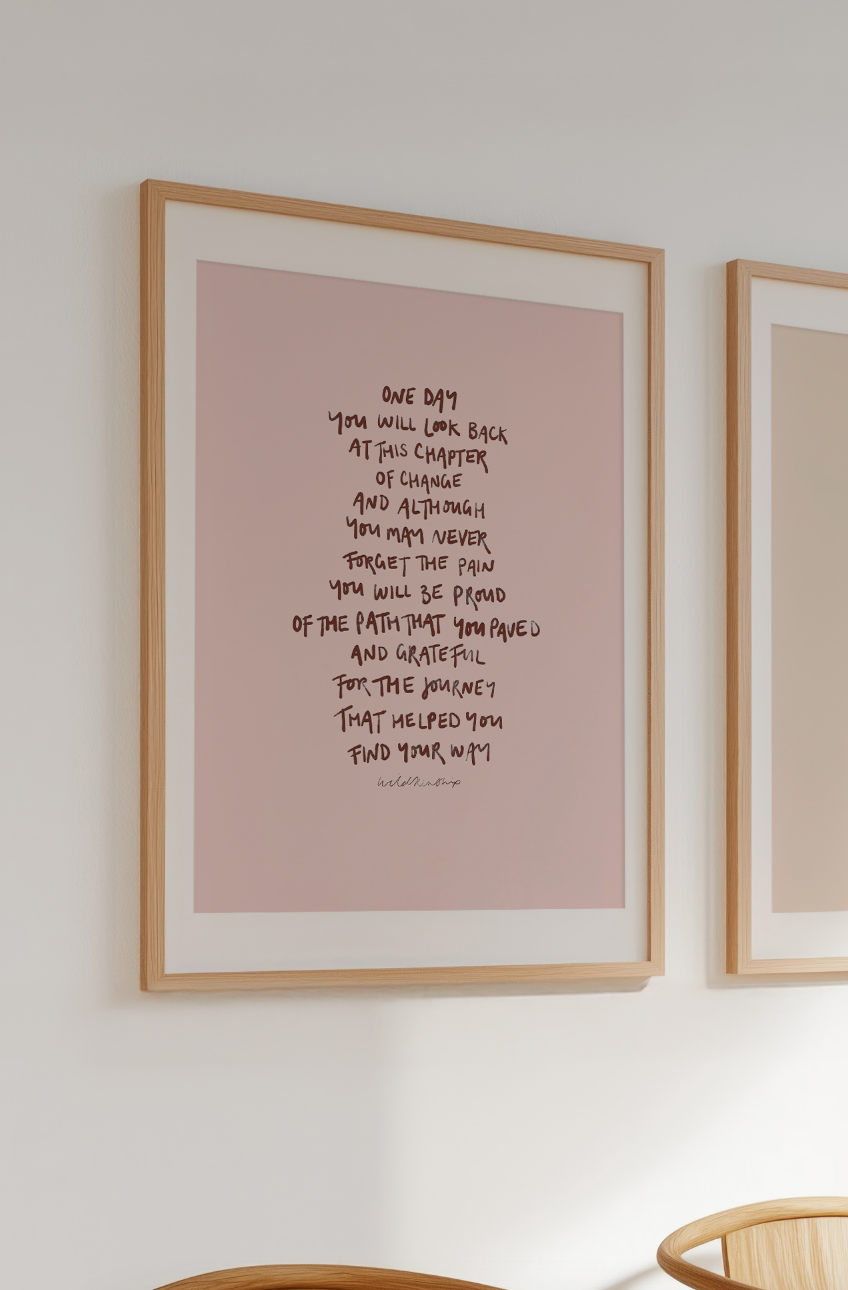 ONE DAY
YOU WILL LOOK BACK
AT THIS CHAPTER
OF CHANGE
AND ALTHOUGH
YOU MAY NEVER
FORGET THE PAIN
YOU WILL BE PROUD
OF THE PATH THAT YOU PAVED
AND GRATEFUL
FOR THE JOURNEY
THAT HELPED YOU
FIND YOUR WAY